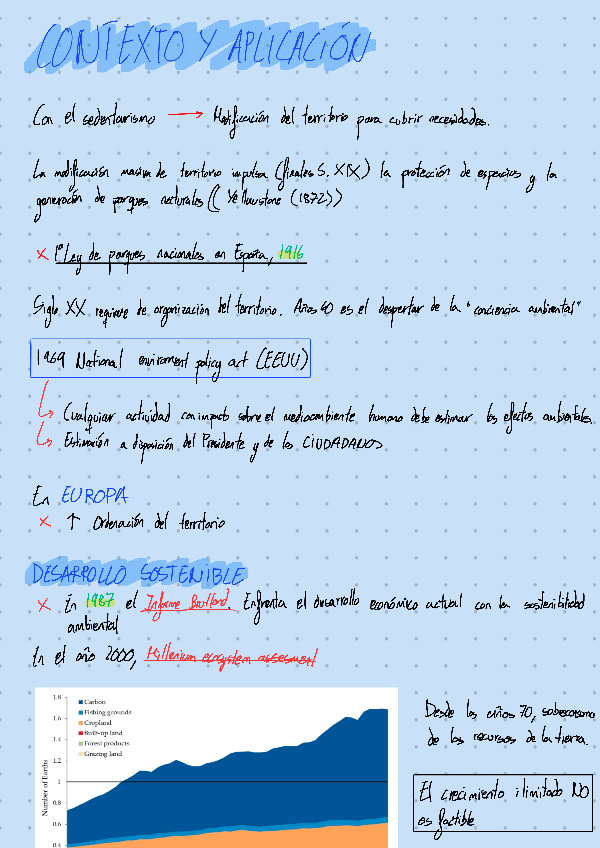 CONTEXTO Y APLICACIÓN
Con el sedentarismo → Modificación del territorio para cubrir necesidades.
La modificación masiva de territorio impulsa (finales S. XIX) la protección de espacios y la
generación de parques naturales (( Yellowstone (1872))
× 1ª Ley de parques nacionales en España, 1916
Siglo XX requiere de organización del territorio. Años 60 es el despertar de la "conciencia ambiental"
1969 National enviroment policy act (EEUU)
Cualquier actividad con impacto sobre el medioambiente humano debe estimar los efectos ambientales.
Estimación a disposición del Presidente y de los CIUDADANOS
En EUROPA
× ↑ Ordenación del territorio
DESARROLLO SOSTENIBLE
× En 1987 el Informe Brutland. Enfrenta el desarrollo económico actual con la sostenibilidad
ambiental
En el año 2000, Millenium ecosystem assesment
1.8
Carbon
Fishing grounds
1.6
Cropland
Built-up land
1.4
Forest products
Grazing land
1.2
1
0.8
0.6
0.4
Number of Earths
Desde los años 70, sobreconsumo
de los recursos de la tierra.
El crecimiento ilimitado NO
es factible